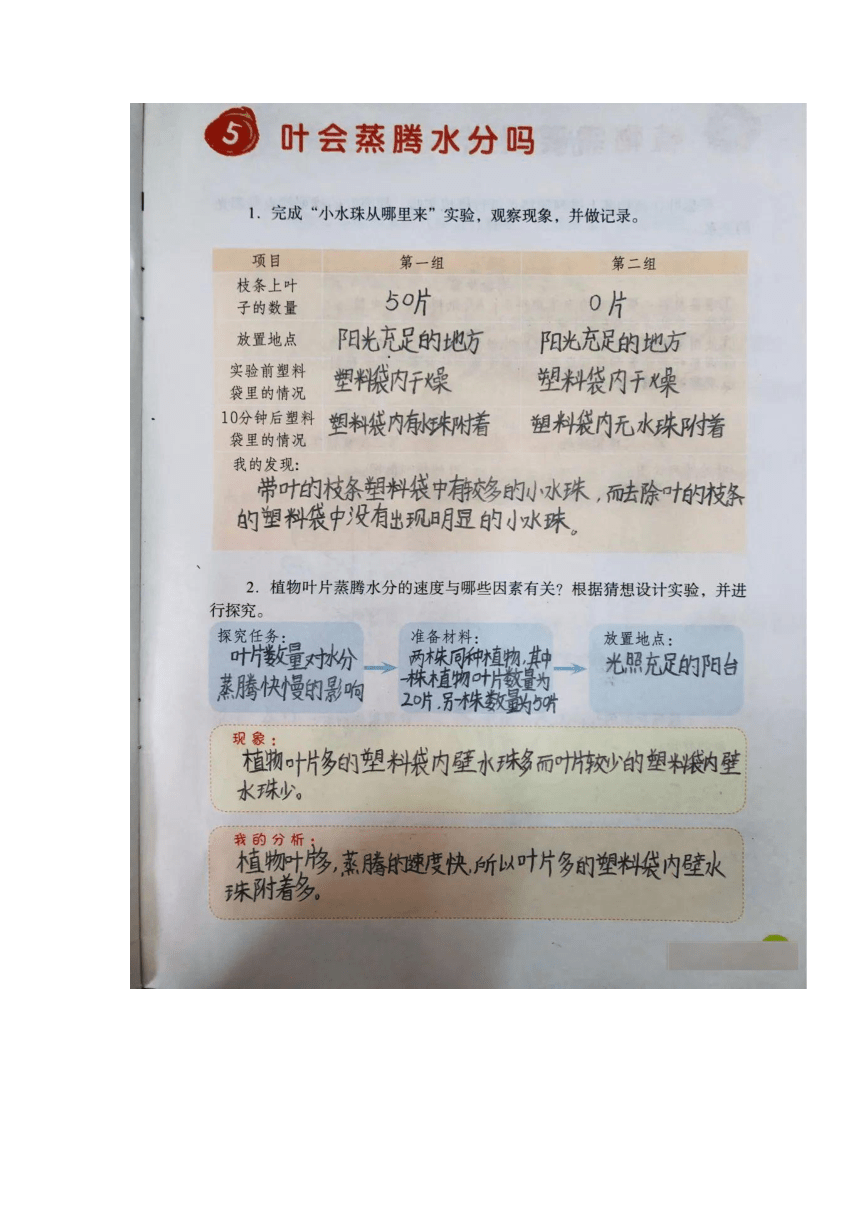 5 叶会蒸腾水分吗
1. 完成“小水珠从哪里来”实验，观察现象，并做记录。
项目 第一组 第二组
枝条上叶
子的数量 50片 0片
放置地点 阳光充足的地方 阳光充足的地方
实验前塑料
袋里的情况 塑料袋内干燥 塑料袋内干燥
10分钟后塑料
袋里的情况 塑料袋内有水珠附着 塑料袋内无水珠附着
我的发现：
带叶的枝条塑料袋中有较多的小水珠，而去除叶的枝条
的塑料袋中没有出现明显的小水珠。
2. 植物叶片蒸腾水分的速度与哪些因素有关？根据猜想设计实验，并进
行探究。
探究任务：
叶片数量对水分
蒸腾快慢的影响
准备材料：
两株同种植物，其中
一株植物叶片数量为
20片，另一株数量为50片
放置地点：
光照充足的阳台
现象：
植物叶片多的塑料袋内壁水珠多而叶片较少的塑料袋内壁
水珠少。
我的分析：
植物叶片多，蒸腾的速度快，所以叶片多的塑料袋内壁水
珠附着多。